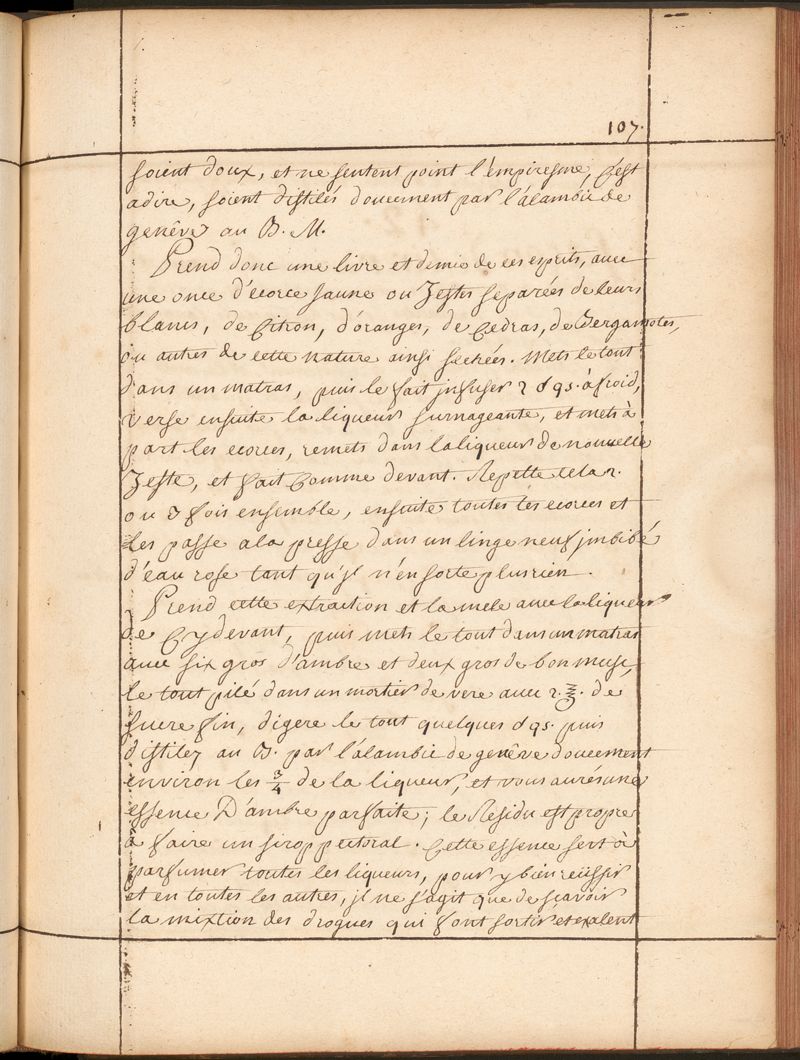 107.
soient doux, et ne sentent point l'émpiresme, C'est
adire, soient distilés doucement par l'álambic de
genêve au B. M.
Prend donc une livre et demie de ces esprits, avec
une once d'écorce jaune ou Zestes separées de leurs
blancs, de Citron, d'oranges, de Cedras, de Bergamotes,
ou autres de cette nature ainsi sechées. Mets le tout
dans un matras, puis le fait jnfuser 2 d qs. à froid,
verse ensuite la liqueur surnageante, et mets à
part les ecorces, remets dans la liqueur de nouvelle
Zeste, et fait Comme devant. Repette cela 2.
ou 3 fois ensemble, ensuite toutes les ecorces et
Les passe a la presse dans un linge neuf jmbibé
d'eau rose tant qu'jl n'en sorte plus rien.
Prend cette extraction et la mele avec la liqueur
de Cy devant, puis mets le tout dans un matras
avec six gros d'ambre et deux gros de bon musc,
le tout pilé dans un mortier de vere avec 2. ℥. de
sucre fin, digere le tout quelques d qs. puis
distilez au B. par l'álambic de genêve doucement
environ les 3/4 de la liqueur, et vous aurés une
essence D'ambre parfaite; le Residu est propre
à faire un sirop pectoral. Cette essence sert à
parfumer toutes les liqueurs, pour y bien reüssir
et en toutes les autres, jl ne s'agit que de scavoir
la mixtion des drogues qui font sortir et exalent